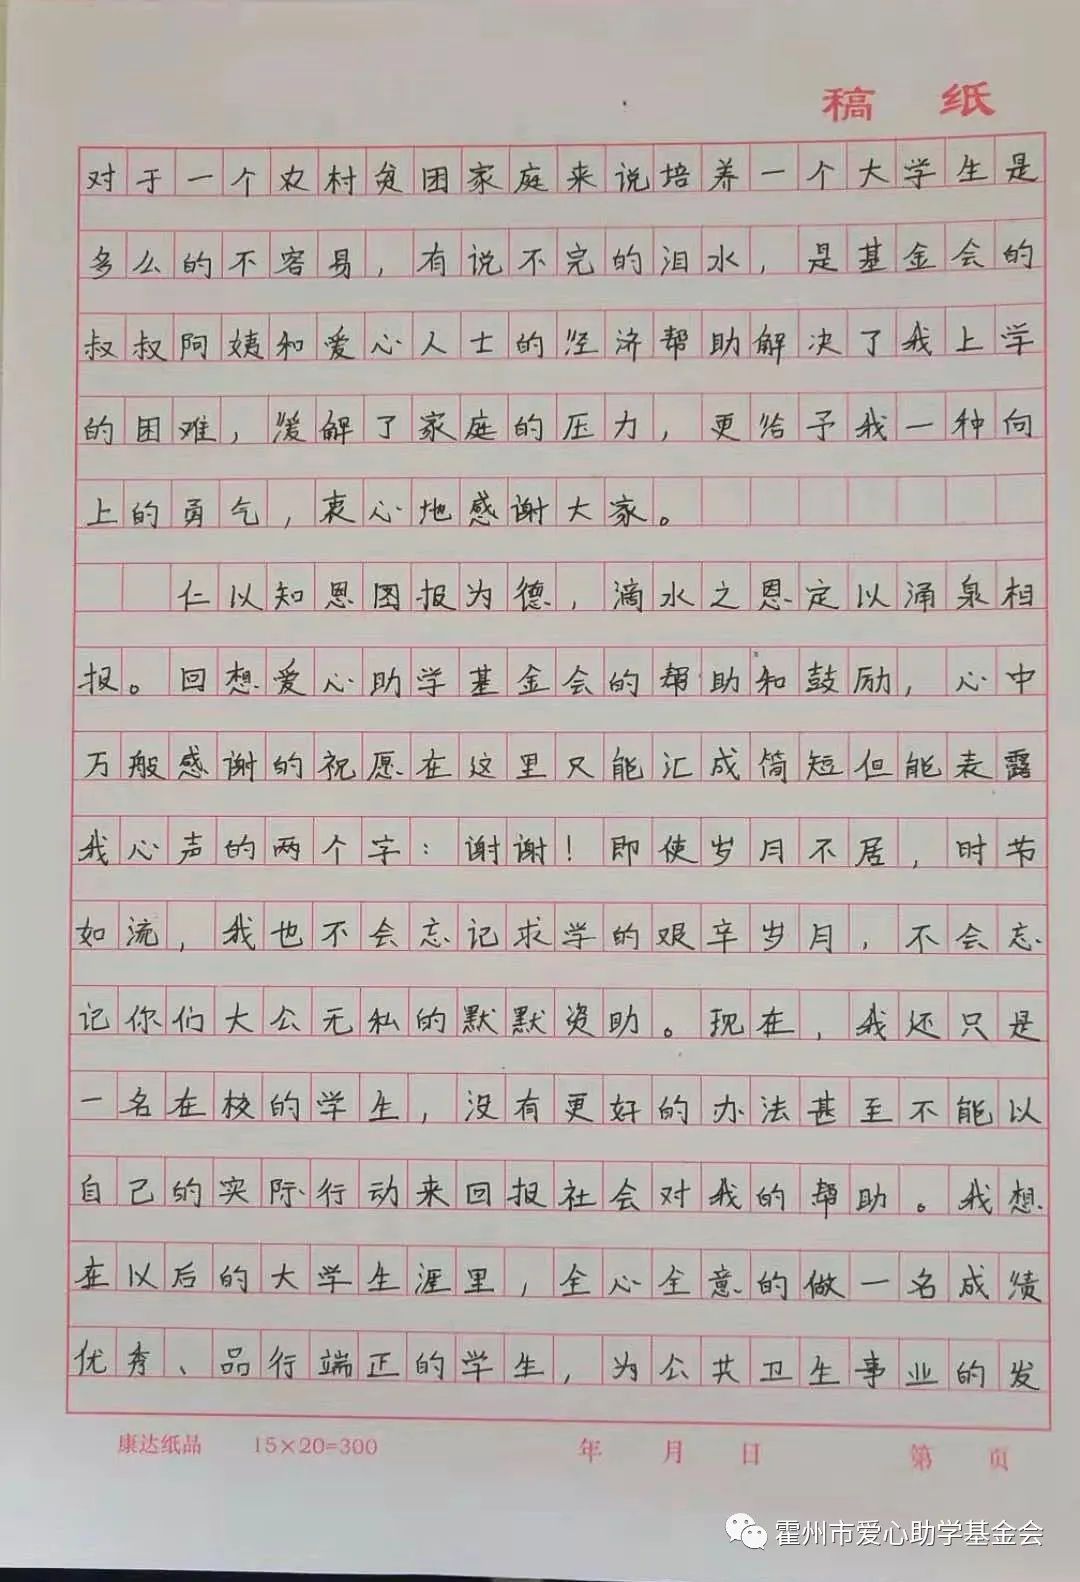 稿 纸
对于一个农村贫困家庭来说培养一个大学生是
多么的不容易，有说不完的泪水，是基金会的
叔叔阿姨和爱心人士的经济帮助解决了我上学
的困难，缓解了家庭的压力，更给予我一种向
上的勇气，衷心地感谢大家。
仁以知恩图报为德，滴水之恩定以涌泉相
报。回想爱心助学基金会的帮助和鼓励，心中
万般感谢的祝愿在这里只能汇成简短但能表露
我心声的两个字：谢谢！即使岁月不居，时节
如流，我也不会忘记求学的艰辛岁月，不会忘
记你们大公无私的默默资助。现在，我还只是
一名在校的学生，没有更好的办法甚至不能以
自己的实际行动来回报社会对我的帮助。我想
在以后的大学生涯里，全心全意的做一名成绩
优秀、品行端正的学生，为公共卫生事业的发
康达纸品 15×20=300 年 月 日 第 页
霍州市爱心助学基金会